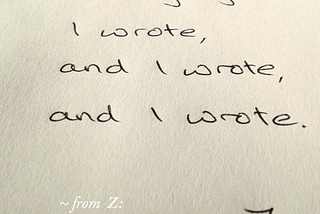 I wrote,
and I wrote,
and I wrote.
~ from Z: